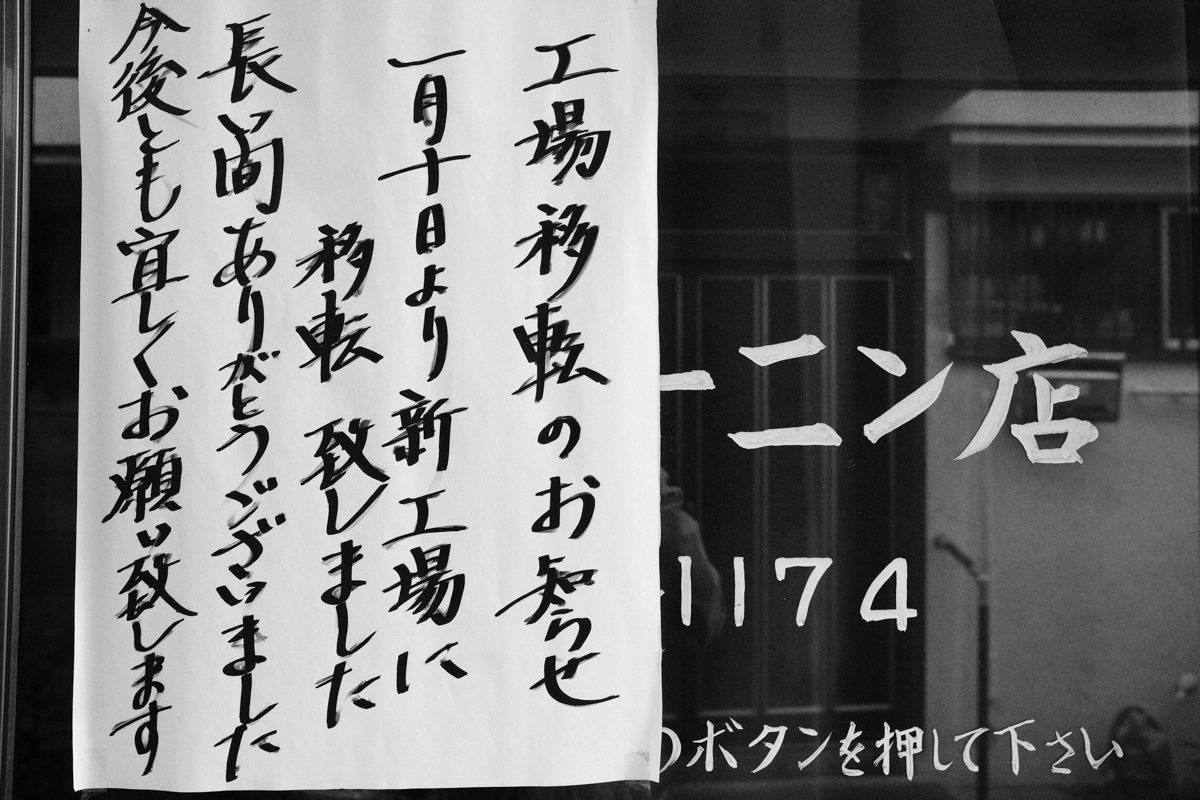 工場移転のお知らせ
一月十日より新工場に
移転致しました
長い間ありがとうございました
今後とも宜しくお願い致します
ーニン店
1174
のボタンを押して下さい